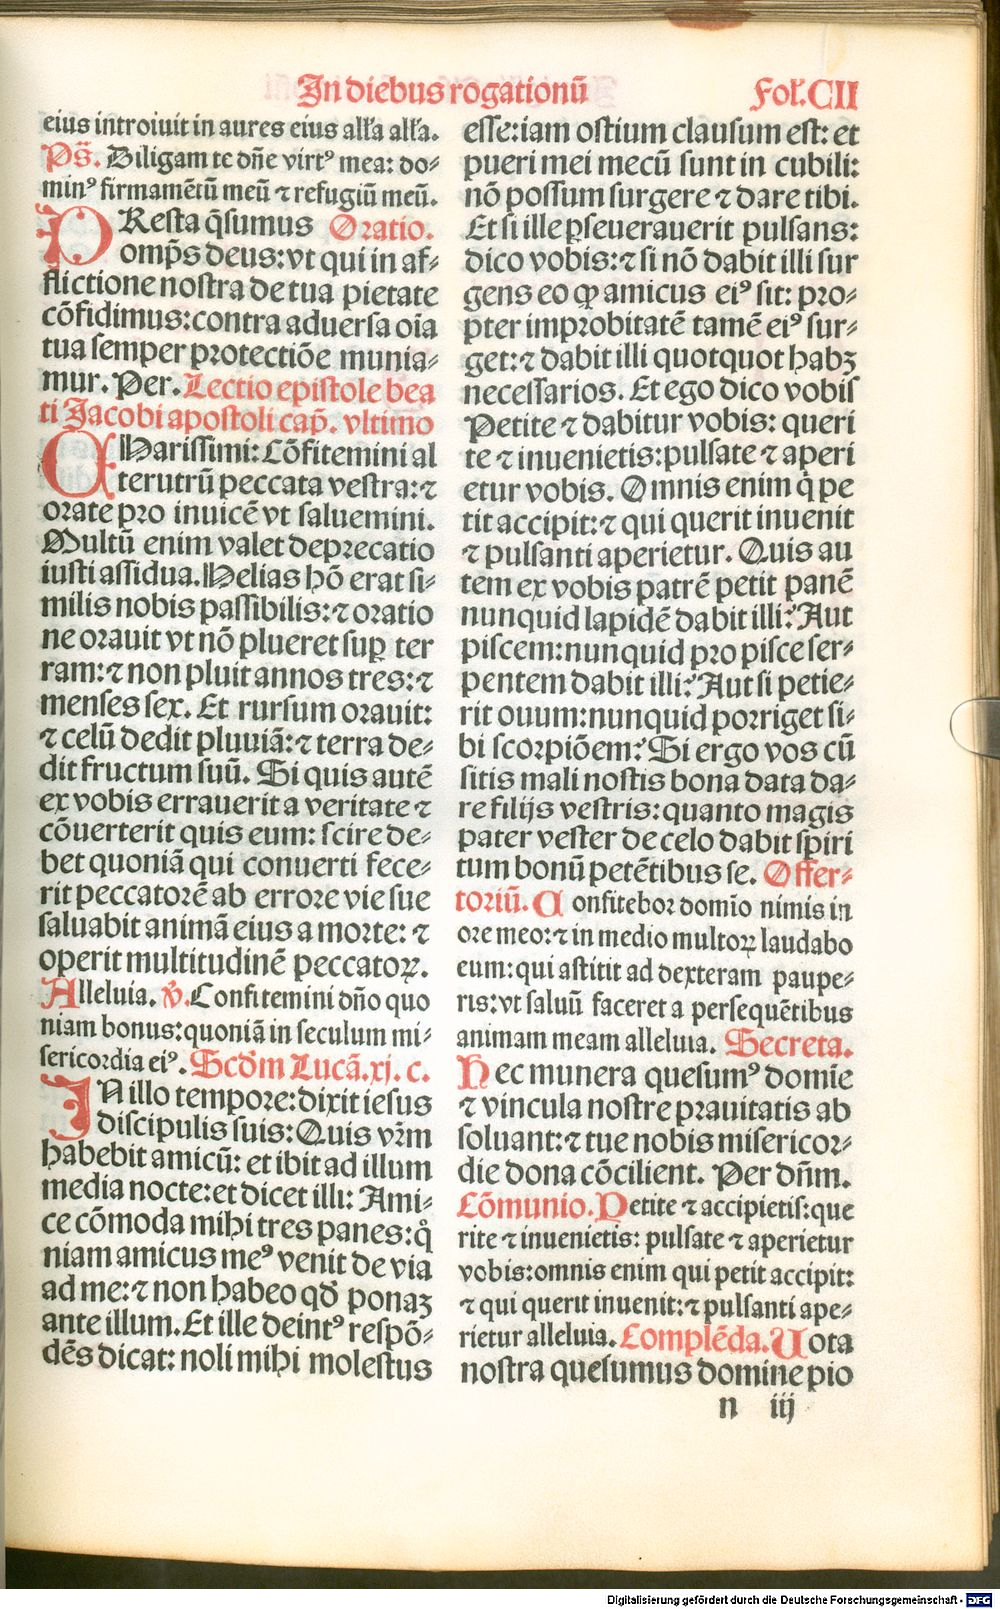 In diebus rogationū Fol.CII
eius introiuit in aures eius alľa alľa.
Ps̄. Diligam te dn̄e virtꝰ mea: do-
minꝰ firmamētū meū ⁊ refugiū meū.
PResta q̄sumus Oratio.
omp̄s deus: vt qui in af-
flictione nostra de tua pietate
cōfidimus: contra aduersa oīa
tua semper protectiōe munia-
mur. Per. Lectio epistole bea
ti Jacobi apostoli cap̄. vltimo
CHarissimi: Cōfitemini al
terutrū peccata vestra: ⁊
orate pro inuicē vt saluemini.
Multū enim valet deprecatio
iusti assidua. Helias hō erat si-
milis nobis passibilis: ⁊ oratio
ne orauit vt nō plueret suꝑ ter
ram: ⁊ non pluit annos tres: ⁊
menses sex. Et rursum orauit:
⁊ celū dedit pluuiā: ⁊ terra de-
dit fructum suū. Si quis autē
ex vobis errauerit a veritate ⁊
cōuerterit quis eum: scire de-
bet quoniā qui conuerti fece-
rit peccatorē ab errore vie sue
saluabit animā eius a morte: ⁊
operit multitudinē peccatoꝝ.
Alleluia. v̄. Confitemini dn̄o quo
niam bonus: quoniā in seculum mi-
sericordia eiꝰ. Scd̄m Lucā. xj. c.
IN illo tempore: dixit iesus
discipulis suis: Quis vr̄m
habebit amicū: et ibit ad illum
media nocte: et dicet illi: Ami-
ce cōmoda mihi tres panes: qͦ
niam amicus meꝰ venit de via
ad me: ⁊ non habeo qd̄ ponaꝫ
ante illum. Et ille deintꝰ respō-
dēs dicat: noli mihi molestus
esse: iam ostium clausum est: et
pueri mei mecū sunt in cubili:
nō possum surgere ⁊ dare tibi.
Et si ille ꝑseuerauerit pulsans:
dico vobis: ⁊ si nō dabit illi sur
gens eo ꝙ amicus eiꝰ sit: pro-
pter improbitatē tamē eiꝰ sur-
get: ⁊ dabit illi quotquot habꝫ
necessarios. Et ego dico vobis
Petite ⁊ dabitur vobis: queri
te ⁊ inuenietis: pulsate ⁊ aperi
etur vobis. Omnis enim q̇ pe
tit accipit: ⁊ qui querit inuenit
⁊ pulsanti aperietur. Quis au
tem ex vobis patrē petit panē
nunquid lapidē dabit illi? Aut
piscem: nunquid pro pisce ser-
pentem dabit illi? Aut si petie-
rit ouum: nunquid porriget si-
bi scorpiōem? Si ergo vos cū
sitis mali nostis bona data da-
re filijs vestris: quanto magis
pater vester de celo dabit spiri
tum bonū petētibus se. Offer-
toriū. Confitebor domīo nimis in
ore meo: ⁊ in medio multoꝝ laudabo
eum: qui astitit ad dexteram paupe-
ris: vt saluū faceret a persequētibus
animam meam alleluia. Secreta.
Hec munera quesumꝰ domīe
⁊ vincula nostre prauitatis ab
soluant: ⁊ tue nobis misericor-
die dona cōcilient. Per dn̄m.
Cōmunio. Petite ⁊ accipietis: que
rite ⁊ inuenietis: pulsate ⁊ aperietur
vobis: omnis enim qui petit accipit:
⁊ qui querit inuenit: ⁊ pulsanti ape-
rietur alleluia. Complēda. Uota
nostra quesumus domine pio
n iij
Digitalisierung gefördert durch die Deutsche Forschungsgemeinschaft - DFG